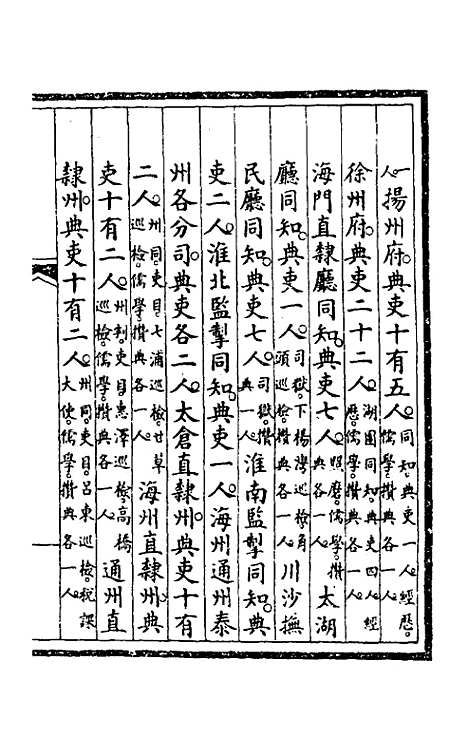 一人揚州府典吏十有五人同知典吏一人經歷儒學攢典各一人
徐州府典吏二十二人湖團同知典吏四人經歷儒學攢典各一人
海門直隸廳同知典吏七人照磨儒學攢典各一人太湖
廳同知典吏一人司獄下楊灣巡檢角頭巡檢攢典各一人川沙撫
民廳同知典吏七人司獄攢典一人淮南監掣同知典
吏二人淮北監掣同知典吏一人海州通州泰
州各分司典吏各二人太倉直隸州典吏十有
二人州同吏目七浦巡檢甘草巡檢儒學攢典各一人海州直隸州典
吏十有二人州判吏目惠澤巡檢高橋巡檢儒學攢典各一人通州直
隸州典吏十有二人州同吏目呂東巡檢稅課大使儒學攢典各一人